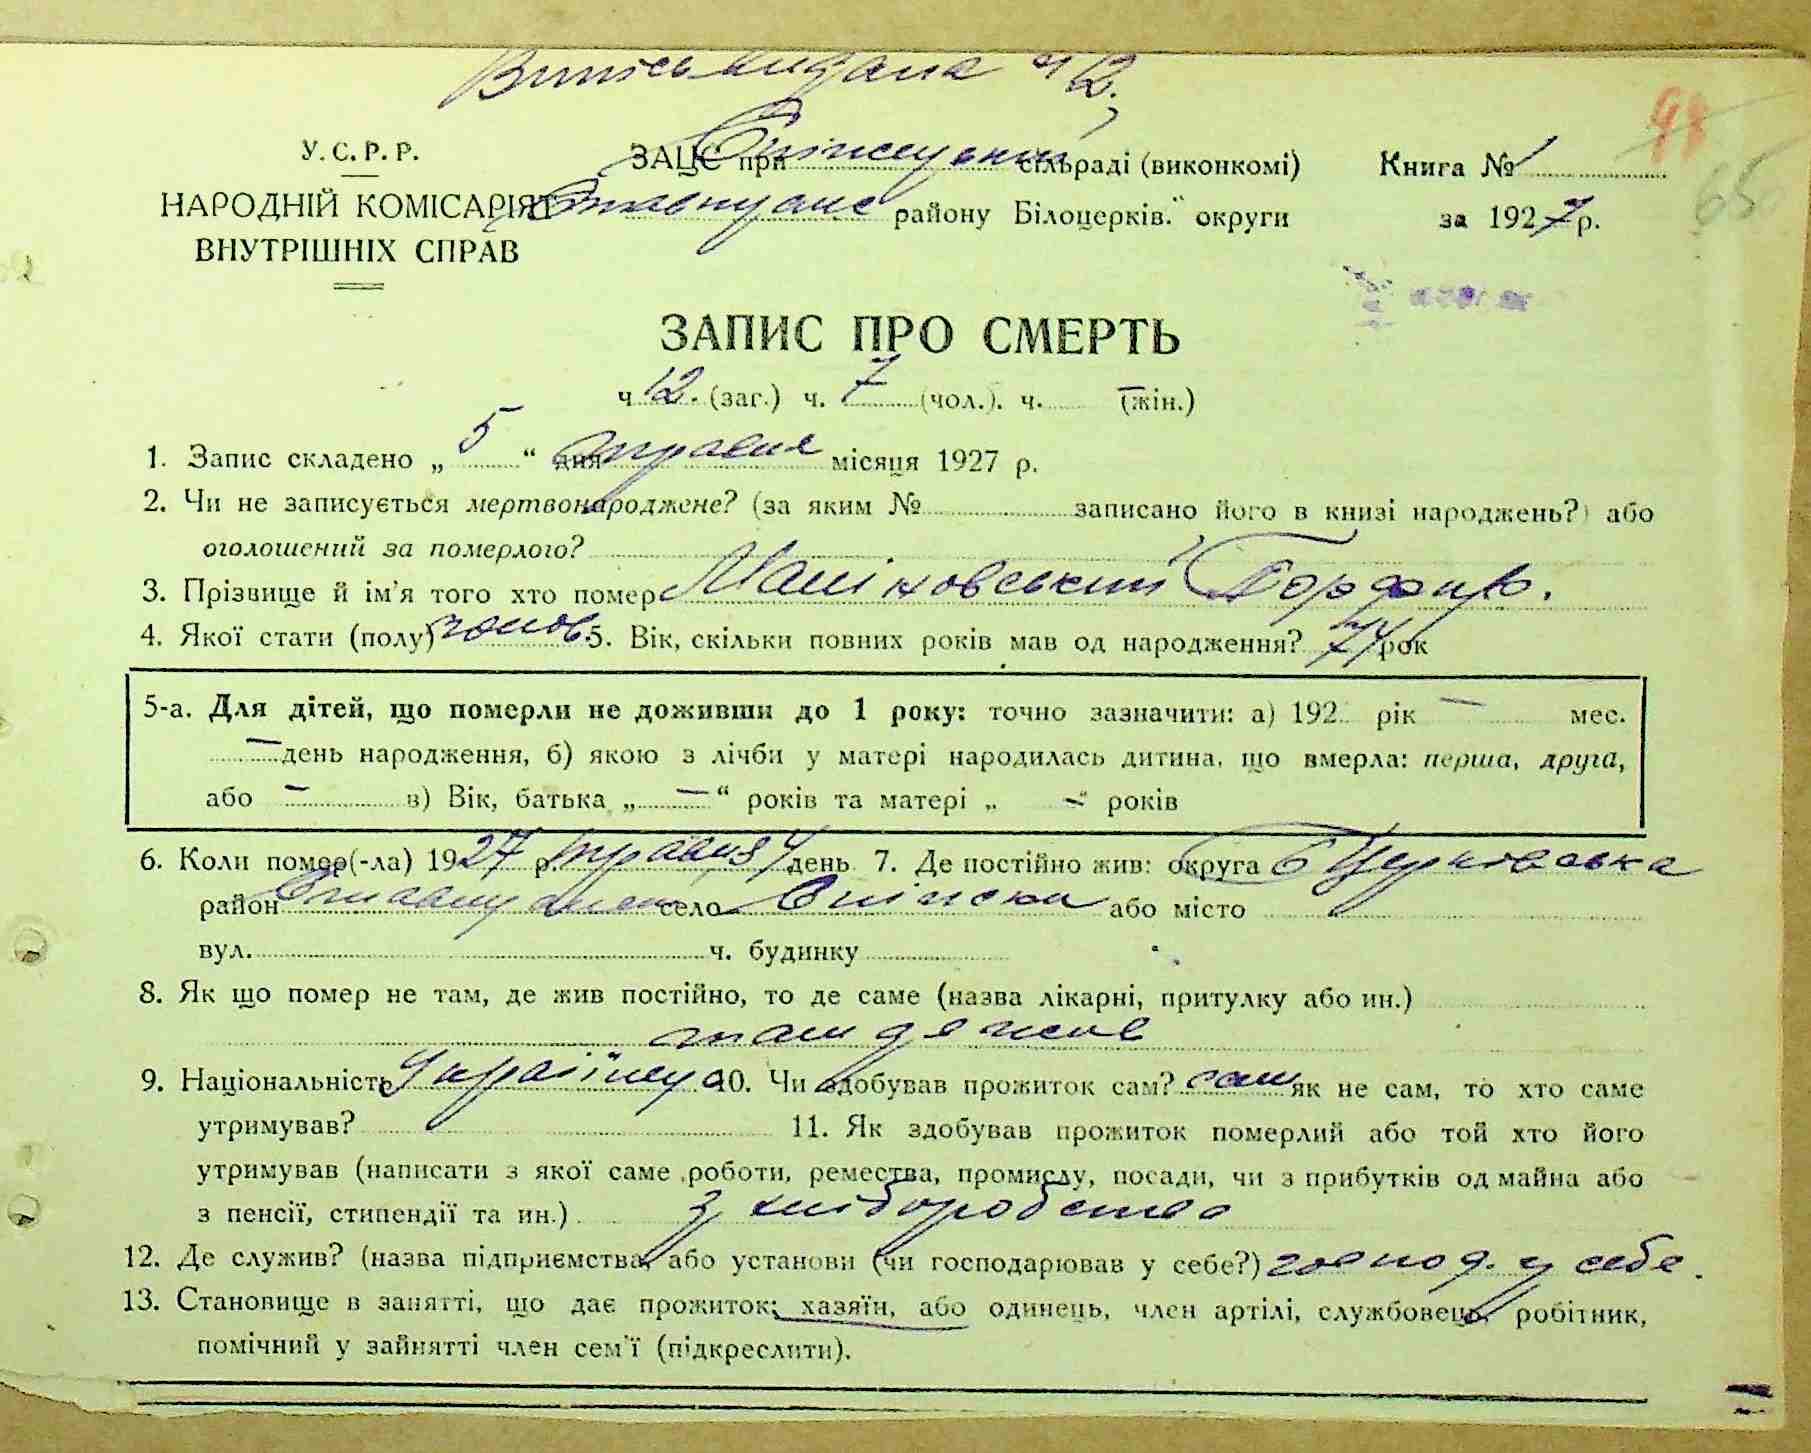 Випись видана ч 12.
98
65
У.С.Р.Р.
НАРОДНІЙ КОМІСАРІЯТ
ВНУТРІШНІХ СПРАВ
ЗАЦС при сільраді (виконкомі)
району Білоцерків." округи
Книга № 1
за 1927 р.
ЗАПИС ПРО СМЕРТЬ
ч 12. (заг.) ч. 7 (чол.). ч. — (жін.)
1. Запис складено „ 5 “ дня травня місяця 1927 р.
2. Чи не записується мертвонароджене? (за яким № записано його в книзі народжень?) або
оголошений за померлого?
3. Прізвище й ім'я того хто помер Маліновський Порфир.
4. Якої стати (полу) чолов. 5. Вік, скільки повних років мав од народження? 74 рок
5-а. Для дітей, що померли не доживши до 1 року: точно зазначити: а) 192 рік — мес.
— день народження, б) якою з лічби у матері народилась дитина, що вмерла: перша, друга,
або — в) Вік, батька „ — “ років та матері „ — “ років
6. Коли помер(-ла) 1927 р. травня 4 день 7. Де постійно жив: округа Б Церковська
район село або місто
вул. ч. будинку
8. Як що помер не там, де жив постійно, то де саме (назва лікарні, притулку або ин.)
там де жив
9. Національність Українець 10. Чи здобував прожиток сам? сам як не сам, то хто саме
утримував? 11. Як здобував прожиток померлий або той хто його
утримував (написати з якої саме роботи, ремества, промислу, посади, чи з прибутків од майна або
з пенсії, стипендії та ин.) з хліборобства
12. Де служив? (назва підприємства, або установи (чи господарював у себе?) господ. у себе.
13. Становище в занятті, що дає прожиток: хазяїн, або одинець, член артілі, службовець, робітник,
помічний у зайнятті член сем'ї (підкреслити).